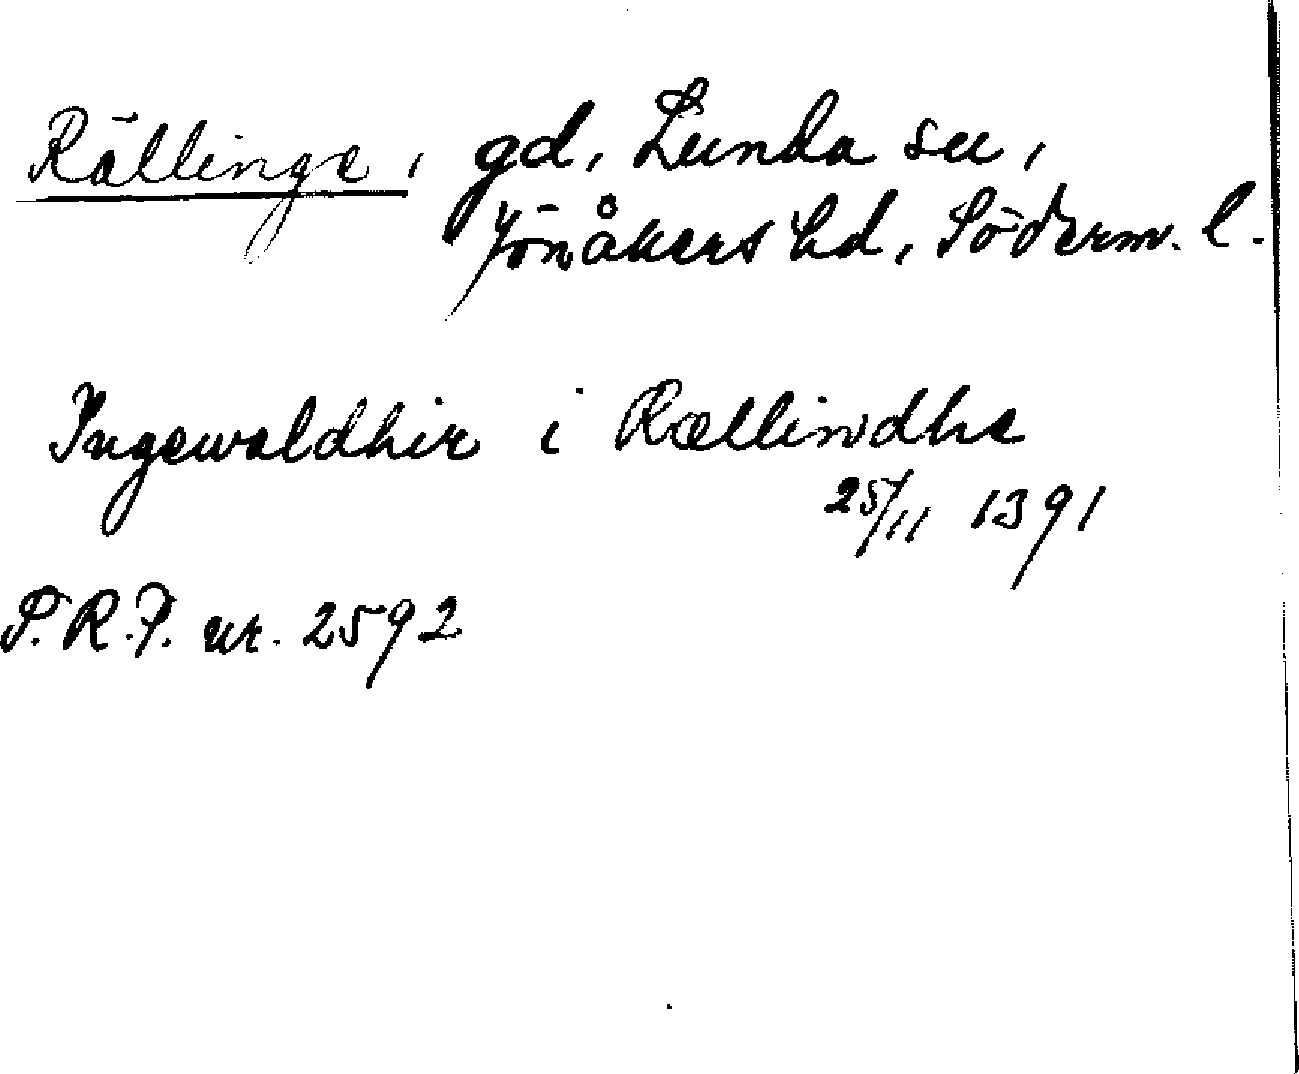 Rällinge, gd, Lunda sn,
Jönåkers hd, Söderm. l.
Ingewaldhir i Rællindhe
25/11 1391
S.R.P. nr. 2592